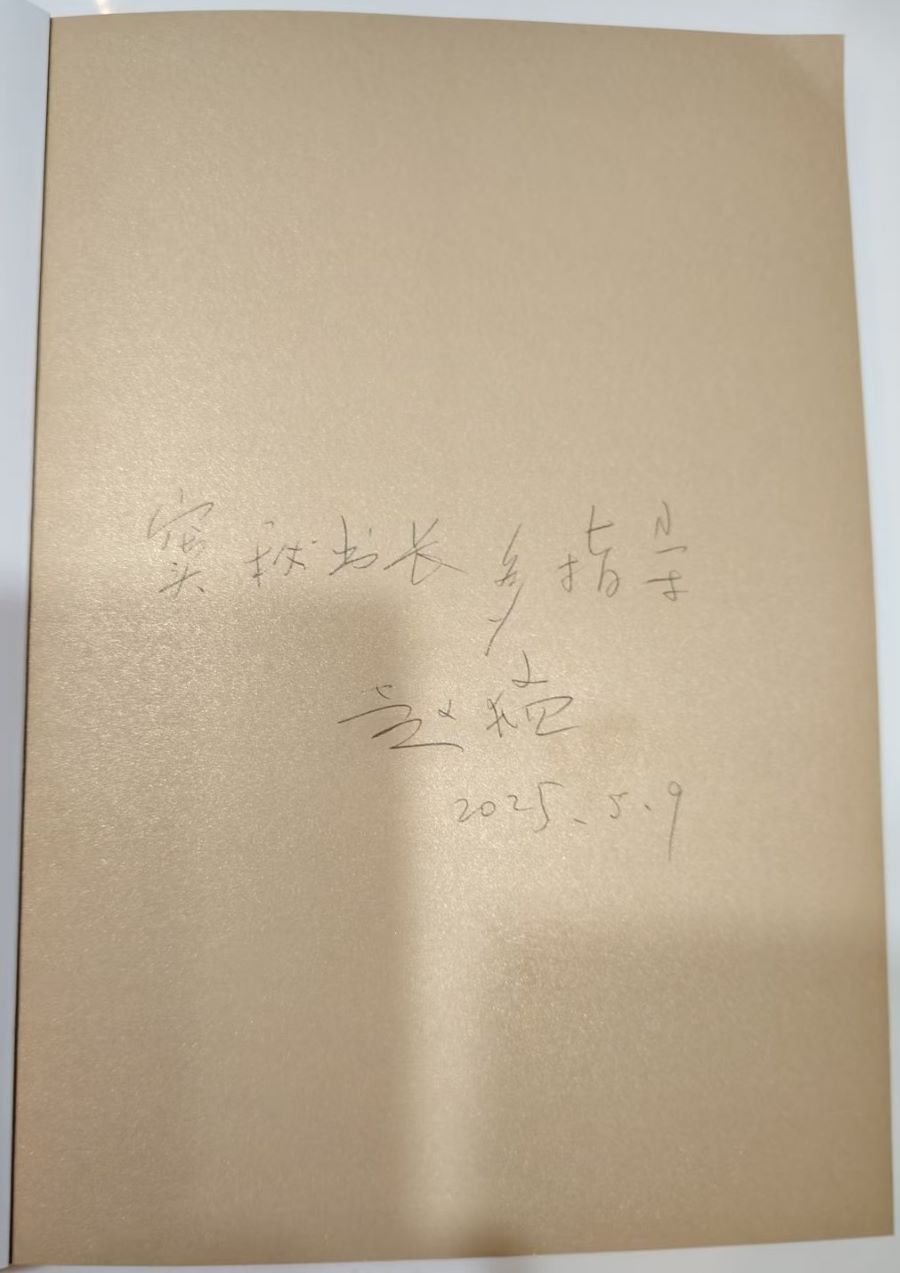 窦秘书长多指导
赵猛
2025.5.9